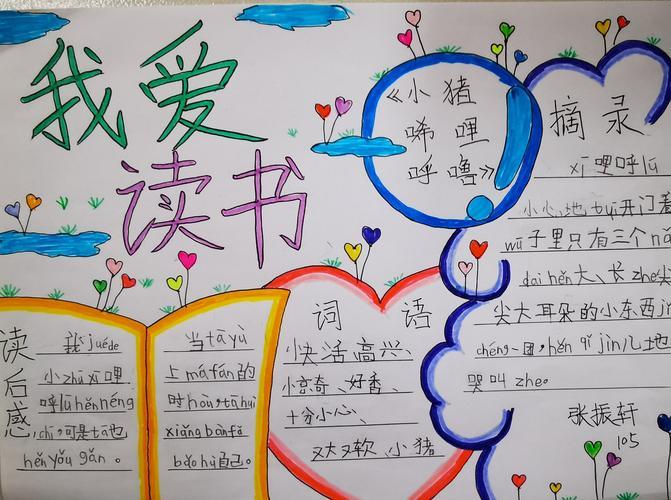 我爱
读书
《小猪
唏哩
呼噜》
摘录
xī哩呼lū
小心地tuī开门看
wū子里只有三个nǎ
dai hěn大、长zhe
尖大耳朵的小东西jǐn
chéng一团,hěn qì jìn儿地
哭叫zhe。
张振轩
105
词语
快活高兴、
惊奇、好香、
十分小心、
又大又软、小猪
读后感
我juéde
小zhū xī哩
呼lū hěn néng
chī,可是tā也
hěn yǒu gǎn。
当tā yù
上má fán的
时hòu,tā huì
xiǎng bàn fǎ
bǎo hù自己。